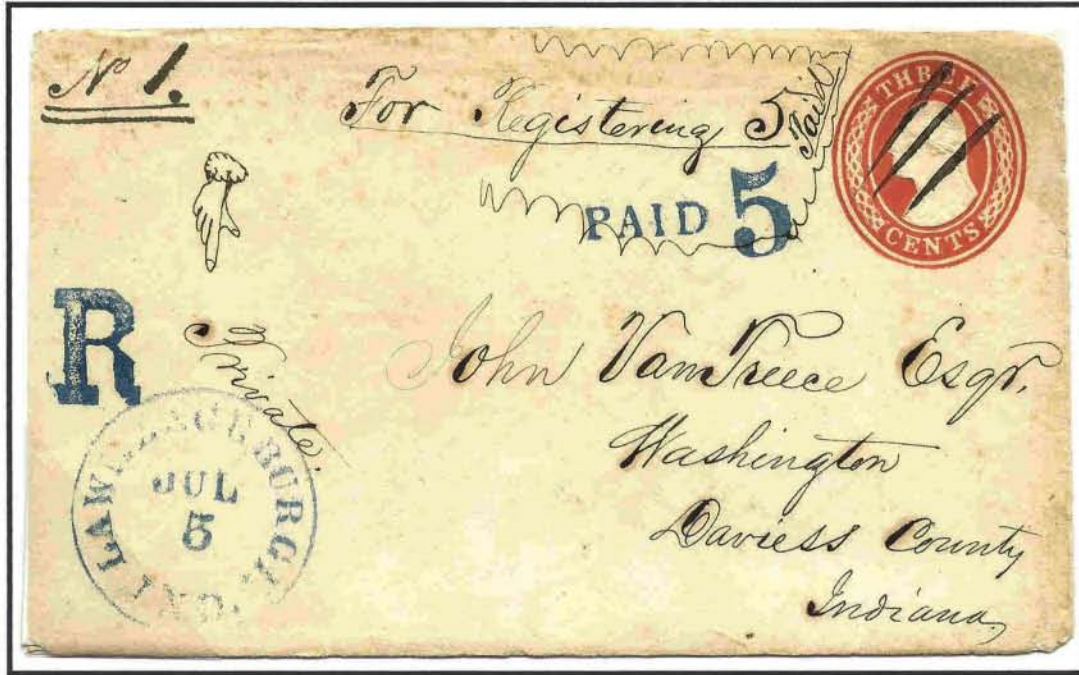 No 1.
For Registering 5 Paid
THREE CENTS
PAID 5
R
Private.
LAWRENCEBURGH IND.
JUL
5
John VanTreece Esqr.
Washington
Daviess County
Indiana